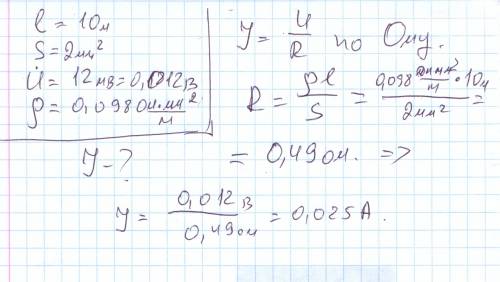 l = 10м
S = 2мм²
U = 12мв = 0,012в
ρ = 0,098 Ом·мм²/м
J - ?
J = U/R по Ому.
R = ρl/S = 0,098 Ом·мм²/м · 10м / 2мм² =
= 0,49 Ом. =>
J = 0,012в / 0,49 Ом = 0,025А.